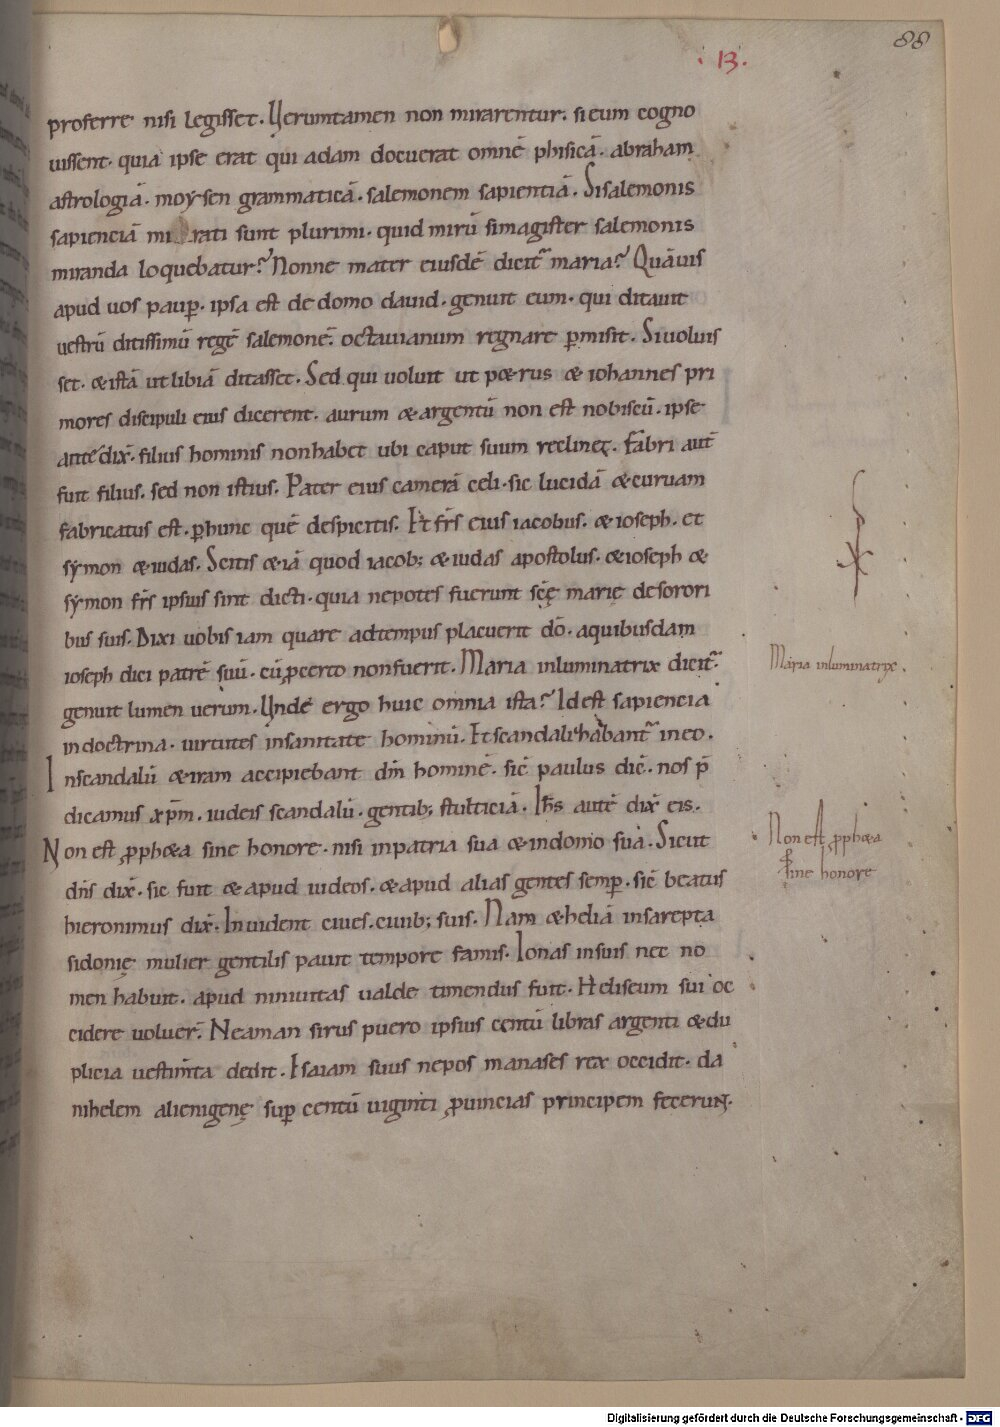 88
.13.
proferre nisi legisset. Uerumtamen non mirarentur. si eum cogno
uissent. quia ipse erat qui adam docuerat omnē phisicā. abraham
astrologiā. moysen grammaticā. salemonem sapientiā. Si salemonis
sapienciā mirati sunt plurimi. quid mirū si magister salemonis
miranda loquebatur? Nonne mater eiusdē dicit᷑ maria? Quāuis
apud uos paup̲. ipsa est de domo dauid. genuit eum. qui ditauit
uestrū ditissimū regē salemonē. octauianum regnare p̲misit. Si voluis
set. & istā ut libiā ditasset. Sed qui uoluit ut p&rus & iohannes pri
mores discipuli eius dicerent. aurum & argentū non est nobiscū. ipse
autē dix̄. filius hominis non habet ubi caput suum reclinet. Fabri autē
fuit filius. sed non istius. Pater eius camerā celi. sic lucidā & curuam
fabricatus est. p̲ hunc quē despicitis. Et fr̄s eius iacobus. & ioseph. et
symon & iudas. Scitis & iā quod iacob; & iudas apostolus. & ioseph &
symon fr̄s ipsius sint dicti. quia nepotes fuerunt sc̄ę marię de sorori
bus suis. Dixi uobis iam quare ad tempus placuerit dō. a quibusdam
ioseph dici patrē suū. cū ꝓ certo non fuerit. Maria inluminatrix dicit᷑.
genuit lumen uerum. Unde ergo huic omnia ista? Id est sapiencia
in doctrina. uirtutes in sanitate hominū. Et scandalihabant᷑ in eo.
In scandalū & iram accipiebant dn̄m hominē. sic̄ paulus dic̄. nos p̄
dicamus xp̄m. iudeis scandalū. gentib; stulticiā. Ih̄s autē dix̄ eis.
Non est ꝓph&a sine honore. nisi in patria sua & in domo sua. Sicut
dn̄s dix̄. sic fuit & apud iudeos. & apud alias gentes semp̲. sic̄ beatus
hieronimus dix̄. Inuident ciues. ciuib; suis. Nam & heliā in sarepta
sidonię mulier gentilis pauit tempore famis. Ionas in suis nec no
men habuit. apud niniuitas ualde timendus fuit. Heliseum sui oc
cidere uoluer̄. Neaman sirus puero ipsius centū libras argenti & du
plicia uestim̄ta dedit. Isaiam suus nepos manases rex occidit. da
nihelem alienigenę sup̲ centū uiginti ꝓuincias principem fecerunt.
Maria inluminatrix.
Non est ꝓph&a
sine honore
Digitalisierung gefördert durch die Deutsche Forschungsgemeinschaft - DFG